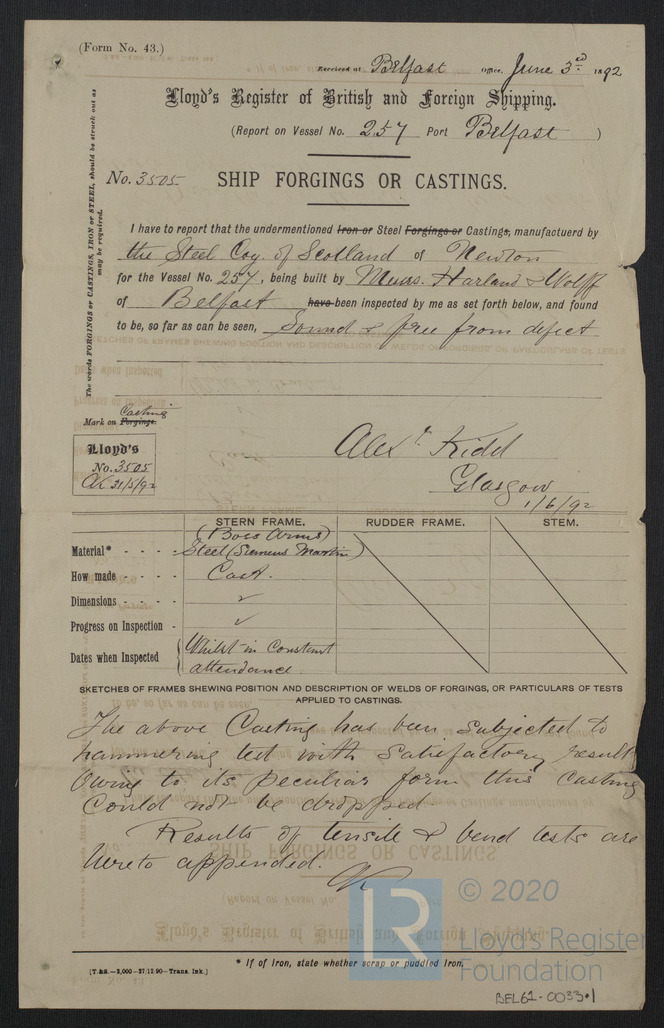 (Form No. 43.)
Received at Belfast Office, June 3rd 1892
Lloyd's Register of British and Foreign Shipping.
(Report on Vessel No. 257 Port Belfast )
No. 3505 SHIP FORGINGS OR CASTINGS.
The words FORGINGS or CASTINGS, IRON or STEEL, should be struck out as
may be required.
I have to report that the undermentioned Iron or Steel Forgings or Castings, manufactuerd by
the Steel Coy. of Scotland of Newton
for the Vessel No. 257, being built by Messrs. Harland & Wolff
of Belfast have been inspected by me as set forth below, and found
to be, so far as can be seen, Sound & free from defect
Casting
Mark on Forgings.
Lloyd's
No. 3505
AK 31/5/92
Alexr. Kidd
Glasgow
1/6/92
STERN FRAME. RUDDER FRAME. STEM.
(Boss Arms)
Material* - - - - Steel (Siemens Martin)
How made - - - - Cast.
Dimensions - - - - ✓
Progress on Inspection - ✓
Dates when Inspected { Whilst in Constant
attendance.
SKETCHES OF FRAMES SHEWING POSITION AND DESCRIPTION OF WELDS OF FORGINGS, OR PARTICULARS OF TESTS
APPLIED TO CASTINGS.
The above Casting has been subjected to
hammering test with satisfactory result
Owing to its peculiar form this casting
could not be dropped
Results of tensile & bend tests are
hereto appended.
AK
* If of Iron, state whether scrap or puddled Iron.
[T.&S.—3,000—27/12/90—Trans. Ink.]
LR
© 2020
Lloyd's Register
Foundation
BEL62-0033.1